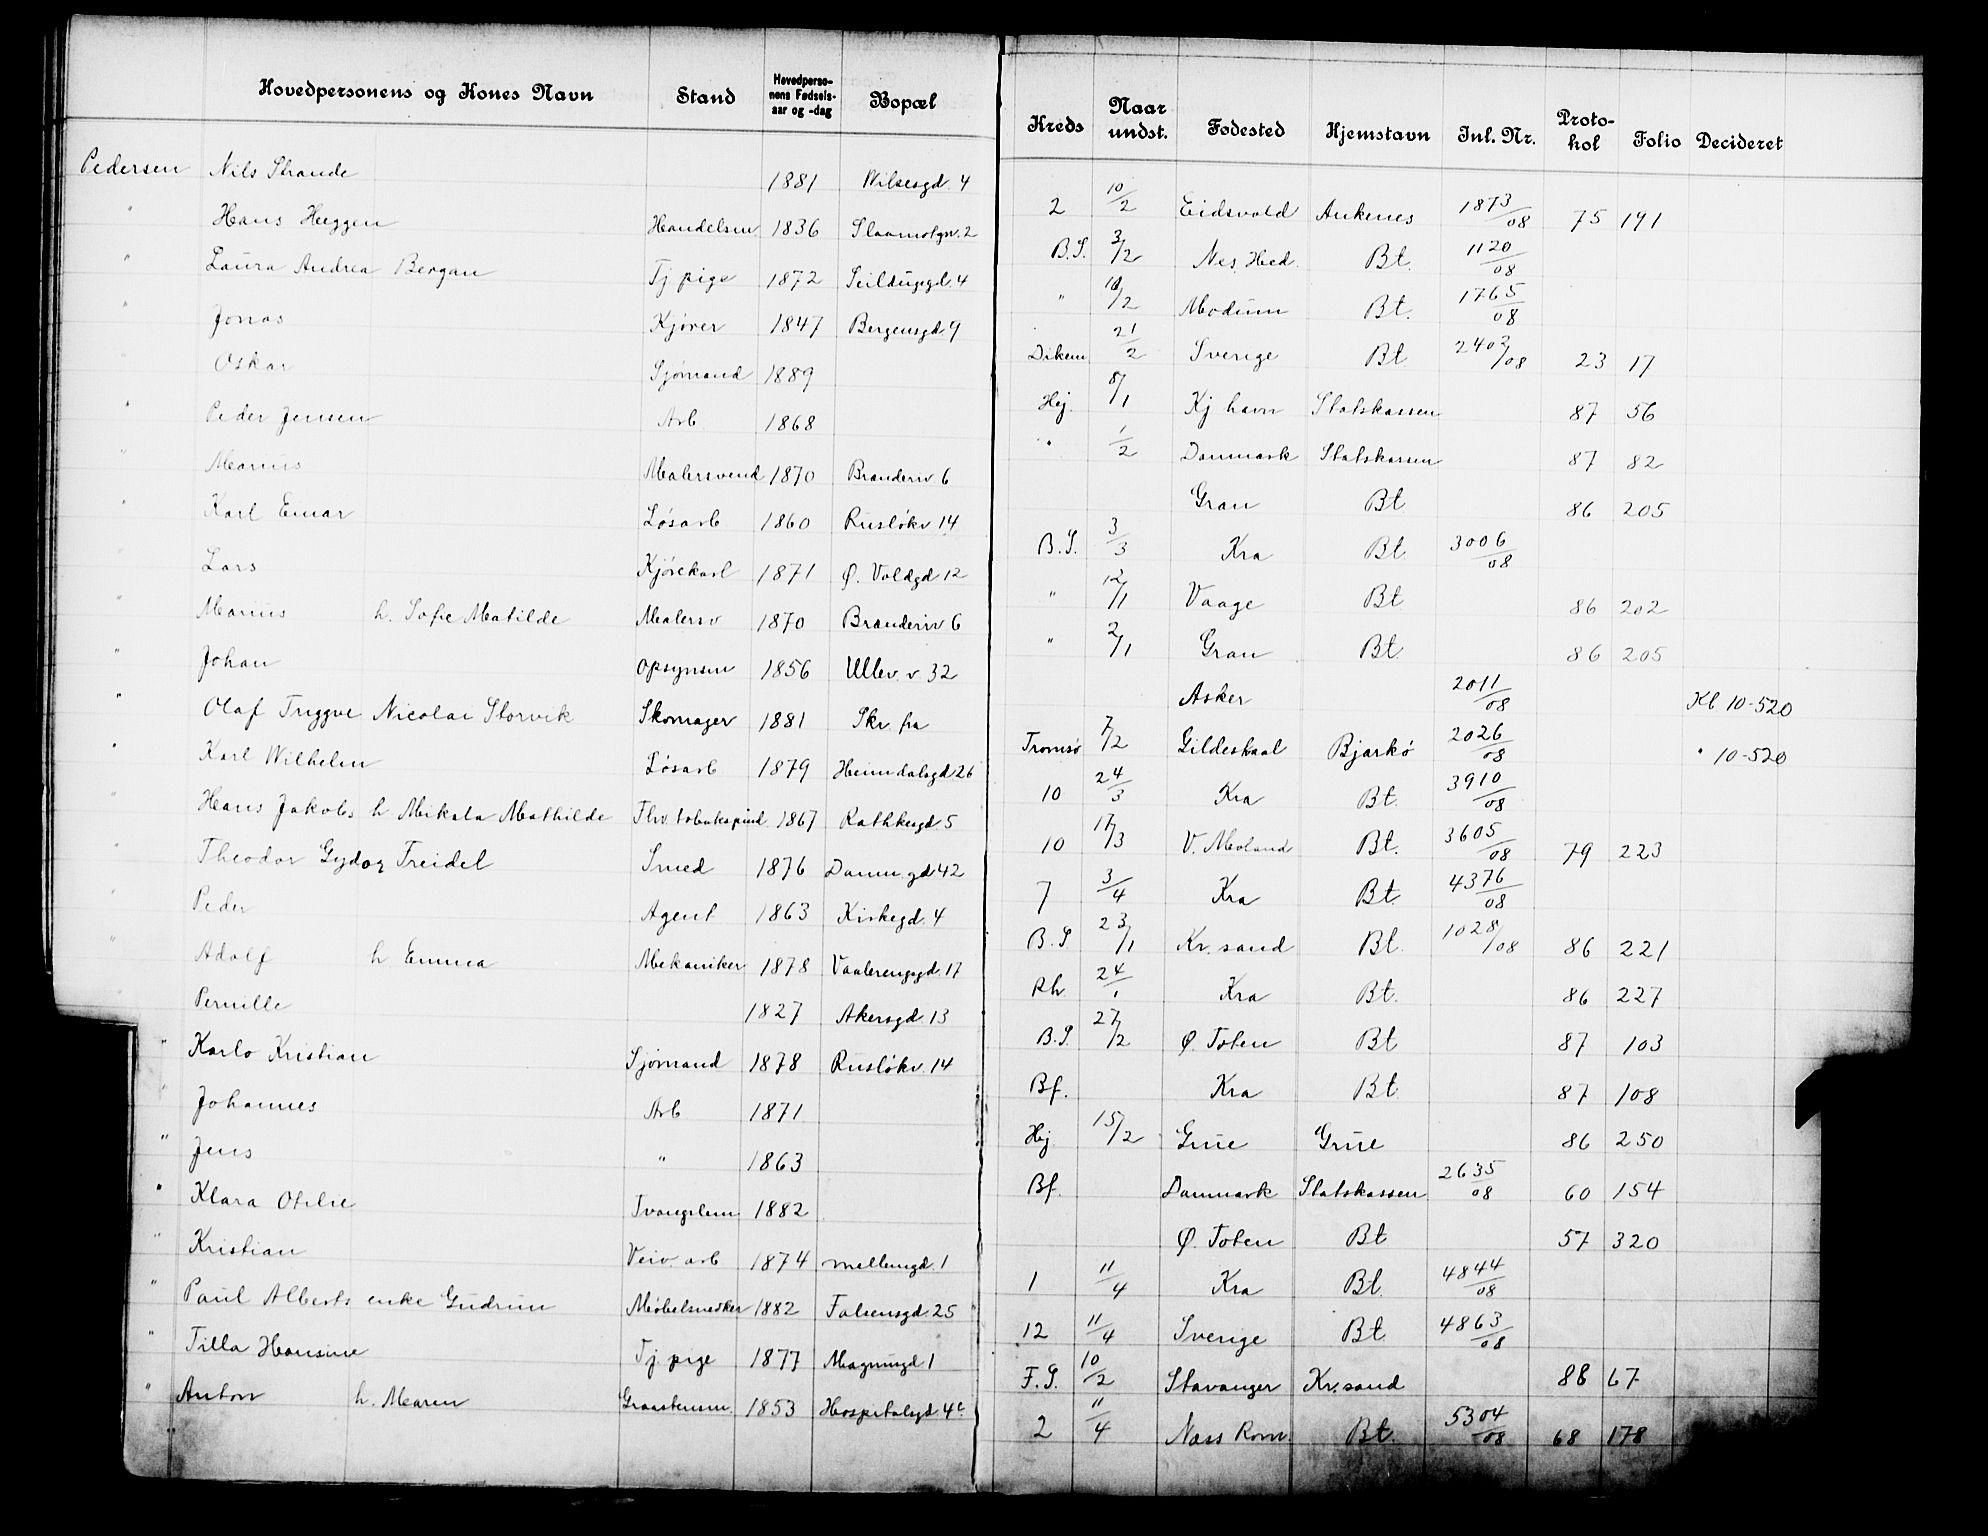 Hovedpersonens og Kones Navn Stand Hovedpersonens Fødselsaar og -dag Bopæl Kreds Naar undst. Fødested Hjemstavn Inl. Nr. Protokol Folio Decideret
Pedersen Nils Strande 1881 Wilsesgd. 4 2 10/2 Eidsvold Ankenes 1873/08 75 191
" Hans Heggen Handelsm. 1836 2 B.S. 3/2 Nes, Hed. Bt. 1120/08
" Laura Andrea Bergan Tj pige 1872 Seildugsgd. 4 " /2 Modum Bt. 1765/08
" Jonas Kjører 1847 Bergensgd 9 Dikem. 21/2 Sverige Bt 2402/08 23 17
Oskar Sjømand 1889 Hej. 8/1 Kj havn Statskassen 87 56
" Peder Jensen Arb. 1868 " 1/2 Danmark Statskassen 87 82
" Marius Malersvend 1870 Branderiv 6 Gran Bt 86 205
" Karl Einar Løsarb 1860 Rusløkv 14 B.S. 3/3 Kra Bt 3006/08
" Lars Kjørekarl 1871 Ø. Voldgd 12 " 12/1 Vaage Bt 86 202
" Marius h. Sofie Matilde Malersv 1870 Branderiv 6 " 2/1 Gran Bt. 86 205
" Johan Opsynsm 1856 Ullev. v. 32 Asker 2011/08 Kl 10-520
" Olaf Tryggve Nicolai Storvik Skomager 1881 Skr. fra Tromsø 7/2 Gildeskaal Bjarkø 2026/08 " 10-520
" Karl Wilhelm Løsarb 1879 Heimdalsgd 26 10 24/3 Kra Bt. 3910/08
" Hans Jakobs h Mikala Mathilde Fhv. tobakspind. 1867 Rathkesgd 5 10 17/3 V. Moland Bt. 3605/08 79 223
" Theodor Gydor Treidel Smed 1876 Danm. gd 42 7 3/4 Kra Bt. 4376/08
" Peder Agent 1863 Kirkegd. 4 B.S 23/1 Kr. sand Bt. 1028/08 86 221
" Adolf h Emma Mekaniker 1878 Vaalerengsgd. 17 Rh. 24/1 Kra Bt. 86 227
Pernille 1827 Akersgd 13 B.S. 27/2 Ø. Toten Bt 87 103
" Karlo Kristian Sjømand 1878 Rusløkv. 14 Bf. Kra Bt. 87 108
" Johannes Arb 1871 Hej 15/2 Grue Grue 86 250
" Jens " 1863 Bf. Danmark Statskassen 2635/08 60 154
" Klara Otelie Tvangslem 1882 Ø. Toten Bt 57 320
" Kristian Veiv. arb 1874 mellemgd. 1 1 11/4 Kra Bt. 4844/08
" Paul Alberts enke Gudrun Møbelsnedker 1882 Falsensgd. 25 12 11/4 Sverige Bt 4863/08
" Tilla Hansine Tj. pige 1877 Magnusgd 1 F.S. 10/2 Stavanger Kr.sand 88 67
" Anton h. Maren Graastensm. 1853 Hospitalsgd 4c 2 11/4 Næss Rom. Bt. 5304/08 68 178